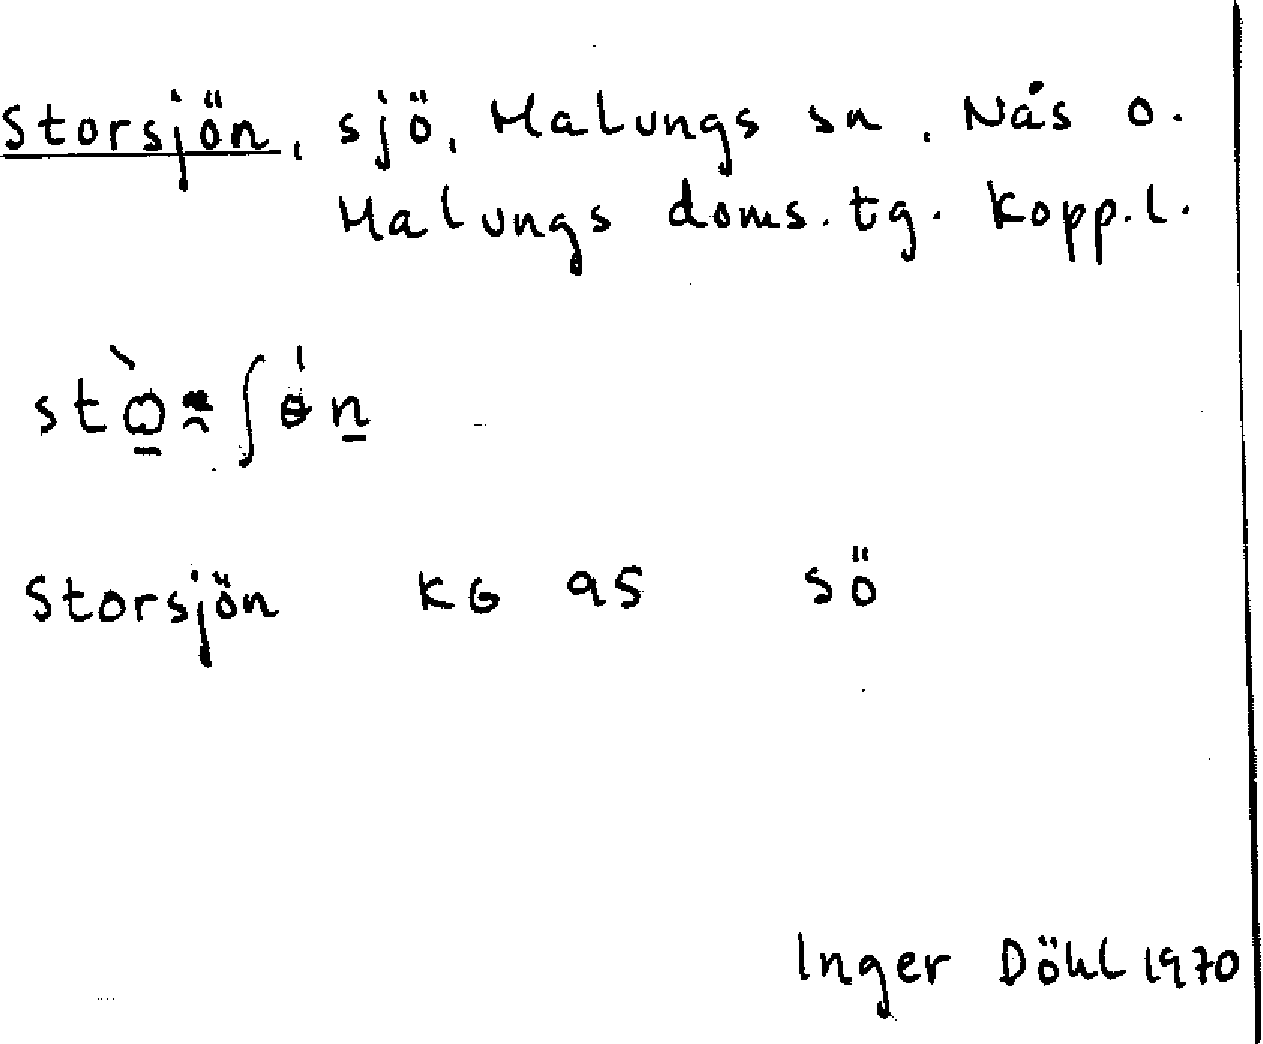 Storsjön, sjö, Malungs sn. Nås o.
Malungs doms.tg. Kopp.l.
Storsjön KG 95 SÖ
Inger Döhl 1970